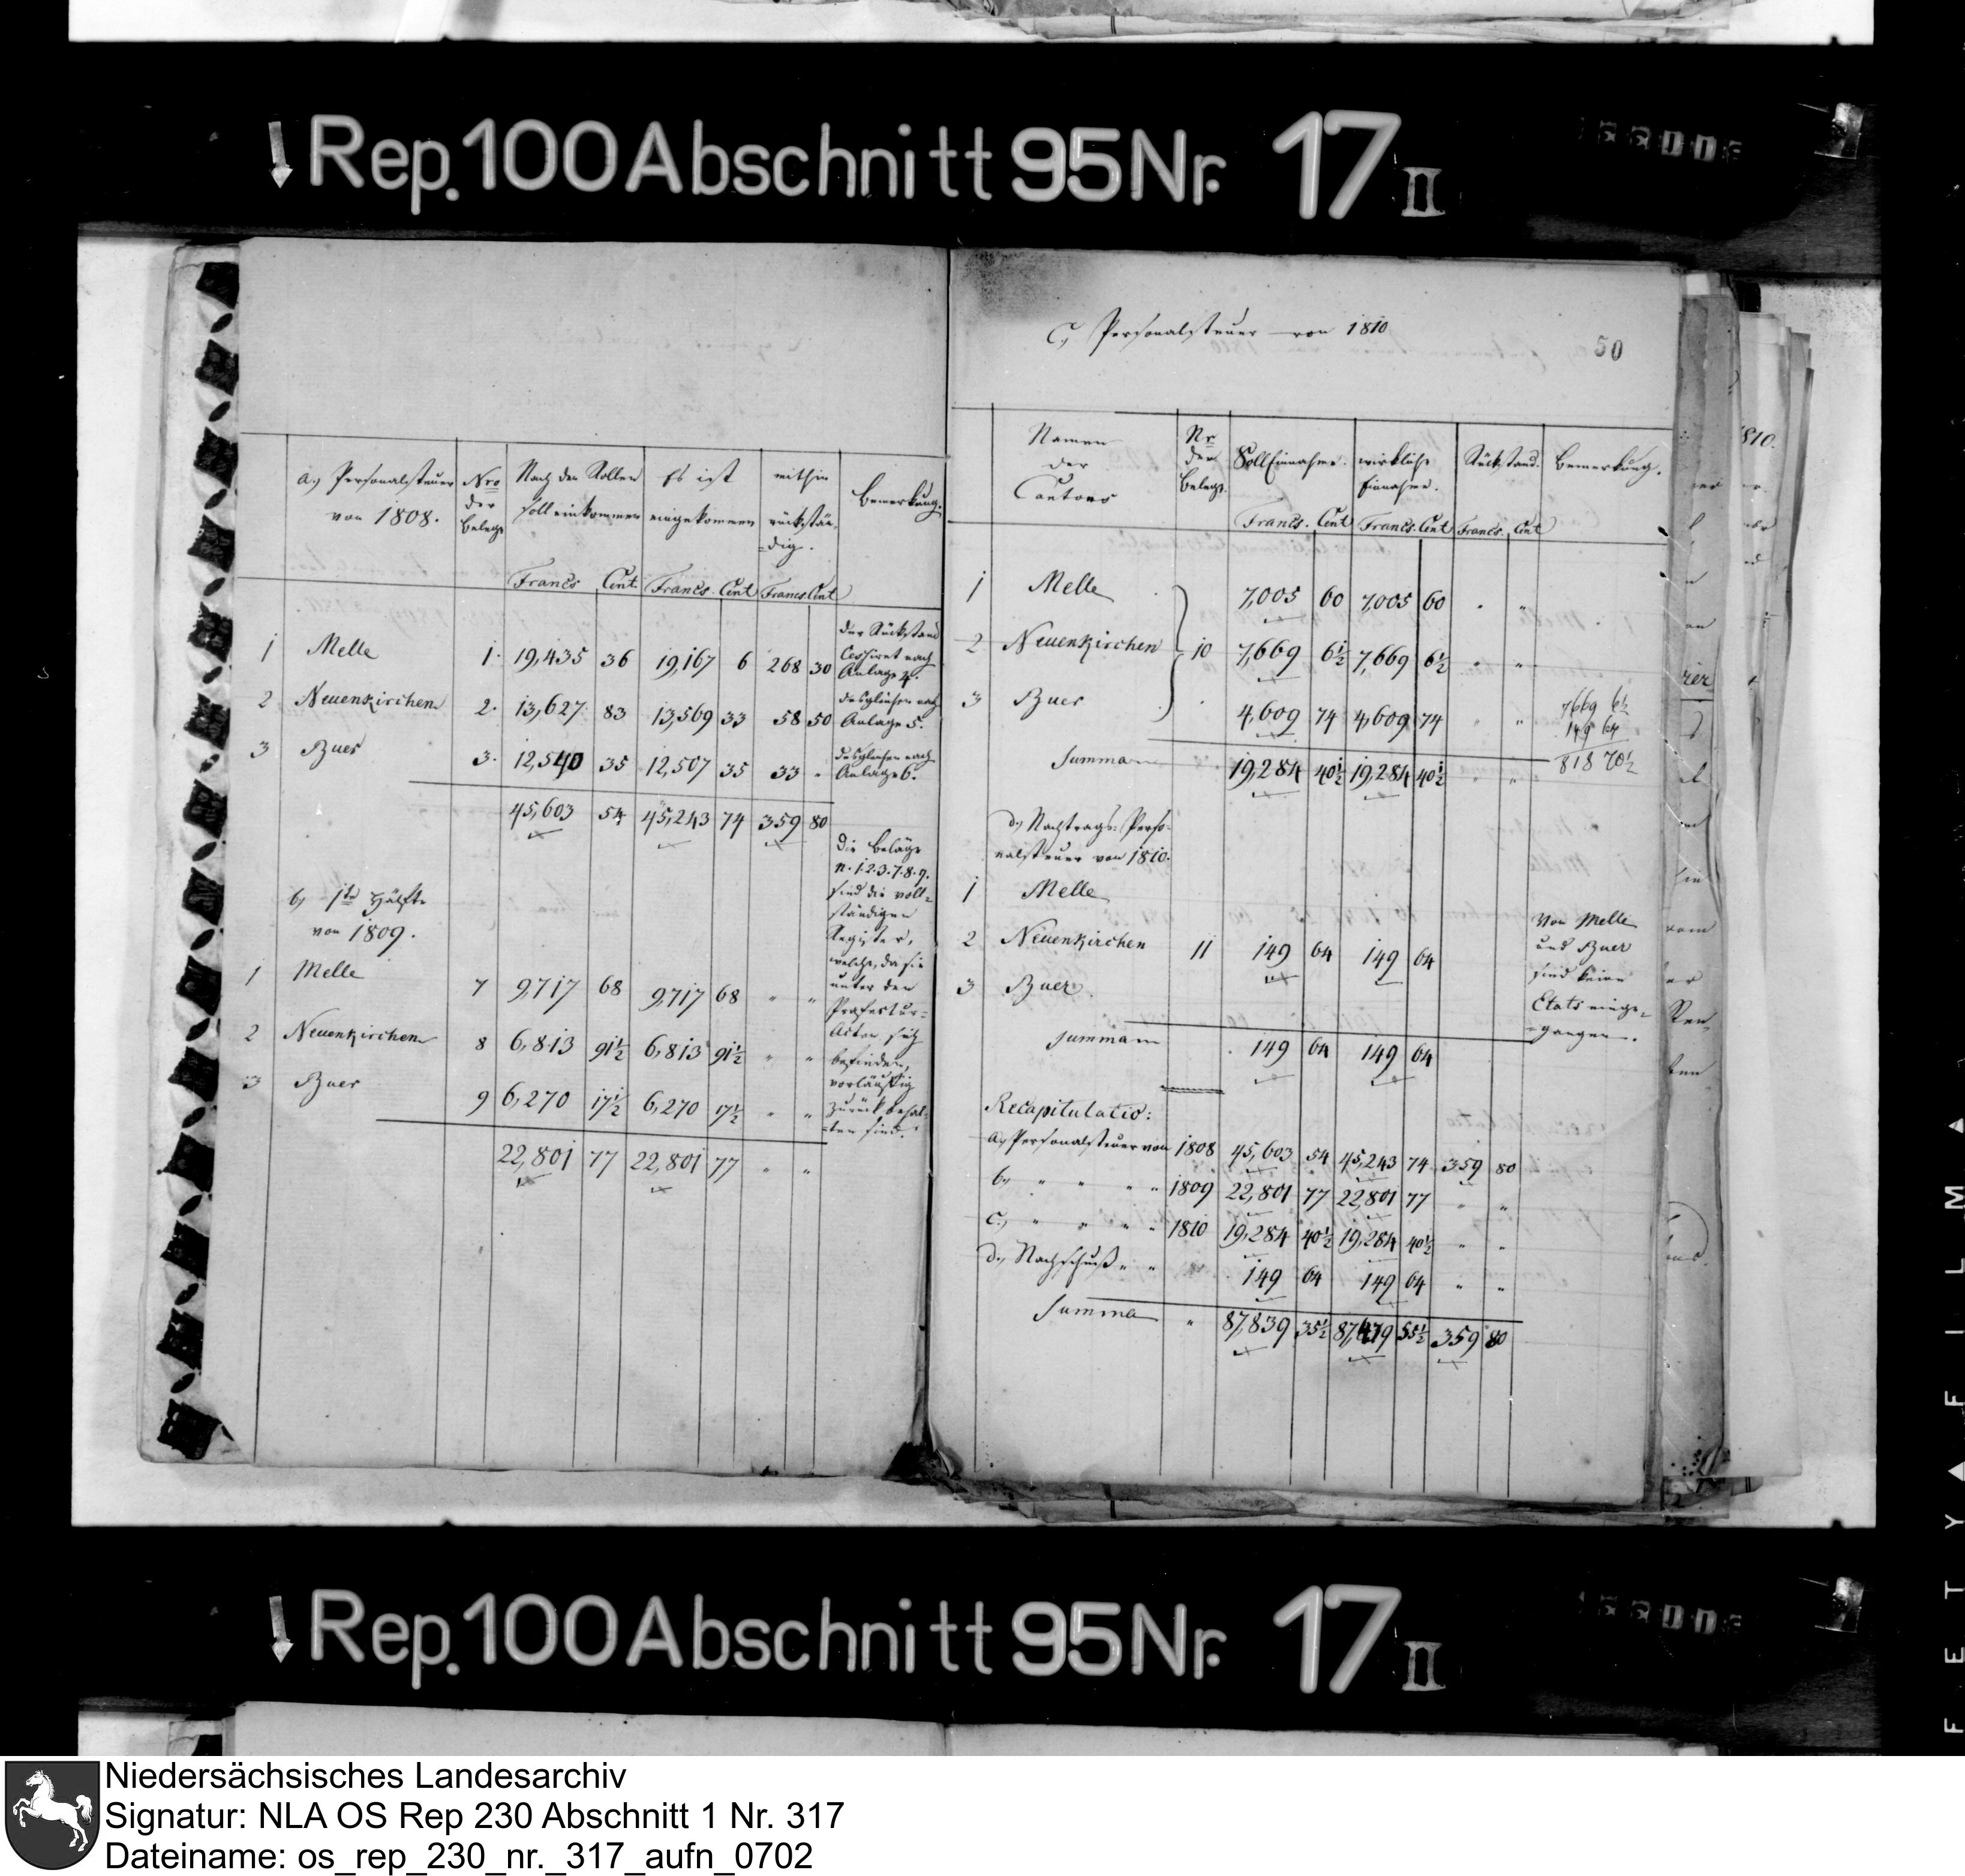 Rep. 100 Abschnitt 95 Nr. 17 II
a.) Personalsteuer von 1808. Nro der Belege Nach den Rollen soll einkommen Es ist eingekommen mithin rückstän=dig. Bemerkung.
Francs Cent. Francs. Cent Francs Cent
1 Melle 1. 19,435 36 19,167 6 268 30 der Rückstand cessiret nach Anlage 4.
2 Neuenkirchen 2. 13,627 83 13,569 33 58 50 desgleichen nach Anlage 5.
3 Buer 3. 12,540 35 12,507 35 33 " desgleichen nach Anlage 6.
45,603 54 45,243 74 359 80
b, 1te Hälfte von 1809.
1 Melle 7 9,717 68 9,717 68 " "
2 Neuenkirchen 8 6,813 91½ 6,813 91½ " "
3 Buer 9 6,270 17½ 6,270 17½ " "
22,801 77 22,801 77 " "
Die Beläge
n. 1.2.3.7.8.9.
sind die voll=
ständigen
Register,
welche, da sie
unter den
Praefectur=
Acten sich
befinden,
vorläufig
zurück behal=
=ten sind.
C., Personalsteuer von 1810
50
Namen der Cantons Nr. der Belege. Soll Einnahme. wirkliche Einnahme. Rückstand. Bemerkung.
Francs. Cent Francs. Cent Francs. Cent
1 Melle 7,005 60 7,005 60 " "
2 Neuenkirchen 10 7,669 6½ 7,669 6½ " "
3 Buer 4,609 74 4,609 74 " "
7669 6½
149 64
818 70½
Summa 19,284 40½ 19,284 40½ " "
d., Nachtrags=Perso=
nalsteuer von 1810.
1 Melle
2 Neuenkirchen 11 149 64 149 64
3 Buer
Von Melle
und Buer
sind keine
Etats einge=
=gangen.
Summa 149 64 149 64
Recapitulatio:
a., Personalsteuer von 1808 45,603 54 45,243 74 359 80
b., " " " " 1809 22,801 77 22,801 77 " "
c., " " " " 1810 19,284 40½ 19,284 40½ " "
d., Nachschuß " " 149 64 149 64 " "
Summa " 87,839 35½ 87,479 55½ 359 80
Rep. 100 Abschnitt 95 Nr. 17 II
Niedersächsisches Landesarchiv
Signatur: NLA OS Rep 230 Abschnitt 1 Nr. 317
Dateiname: os_rep_230_nr._317_aufn_0702